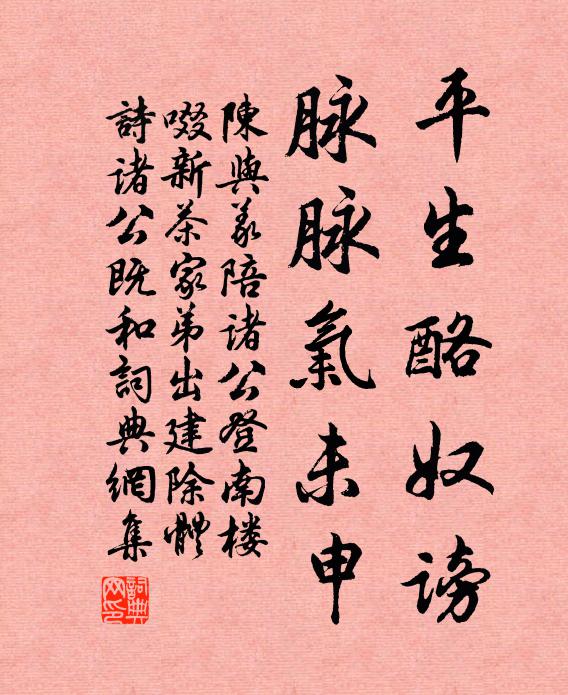 平生酪奴謗
脉脉氣未申
陳與義陪諸公登南楼
啜新茶家弟出建除體
詩諸公既和詞典網集
詞典網印